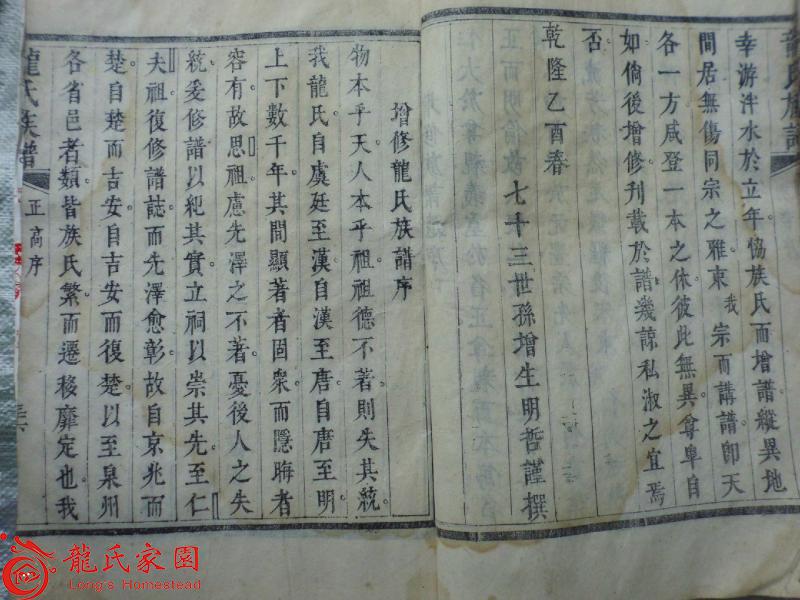 龍氏族譜
幸游泮水於立年恊族氏而增譜縱異地
間居無傷同宗之雅東我宗而講譜即天
各一方咸登一本之休彼此無異尊卑自
如倘後增修刊載於譜幾諒私淑之宜焉
否
乾隆乙酉春
七十三世孫增生明哲謹撰
增修龍氏族譜序
物本乎天人本乎祖祖德不著則失其統
我龍氏自虞廷至漢自漢至唐自唐至明
上下數千年其間顯著者固衆而隱晦者
容有故思祖慮先澤之不著憂後人之失
統爰修譜以紀其實立祠以崇其先至仁
夫祖復修譜誌而先澤愈彰故自京兆而
楚自楚而吉安自吉安而復楚以至泉州
各省邑者類皆族氏繁而遷移靡定也我
龍氏族譜
正高序
龍氏家園
Long's Homestead